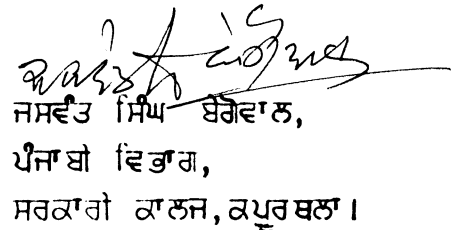 ਜਸਵੰਤ ਸਿੰਘ ਬੇਗੋਵਾਲ,
ਪੰਜਾਬੀ ਵਿਭਾਗ,
ਸਰਕਾਰੀ ਕਾਲਜ, ਕਪੂਰਥਲਾ।